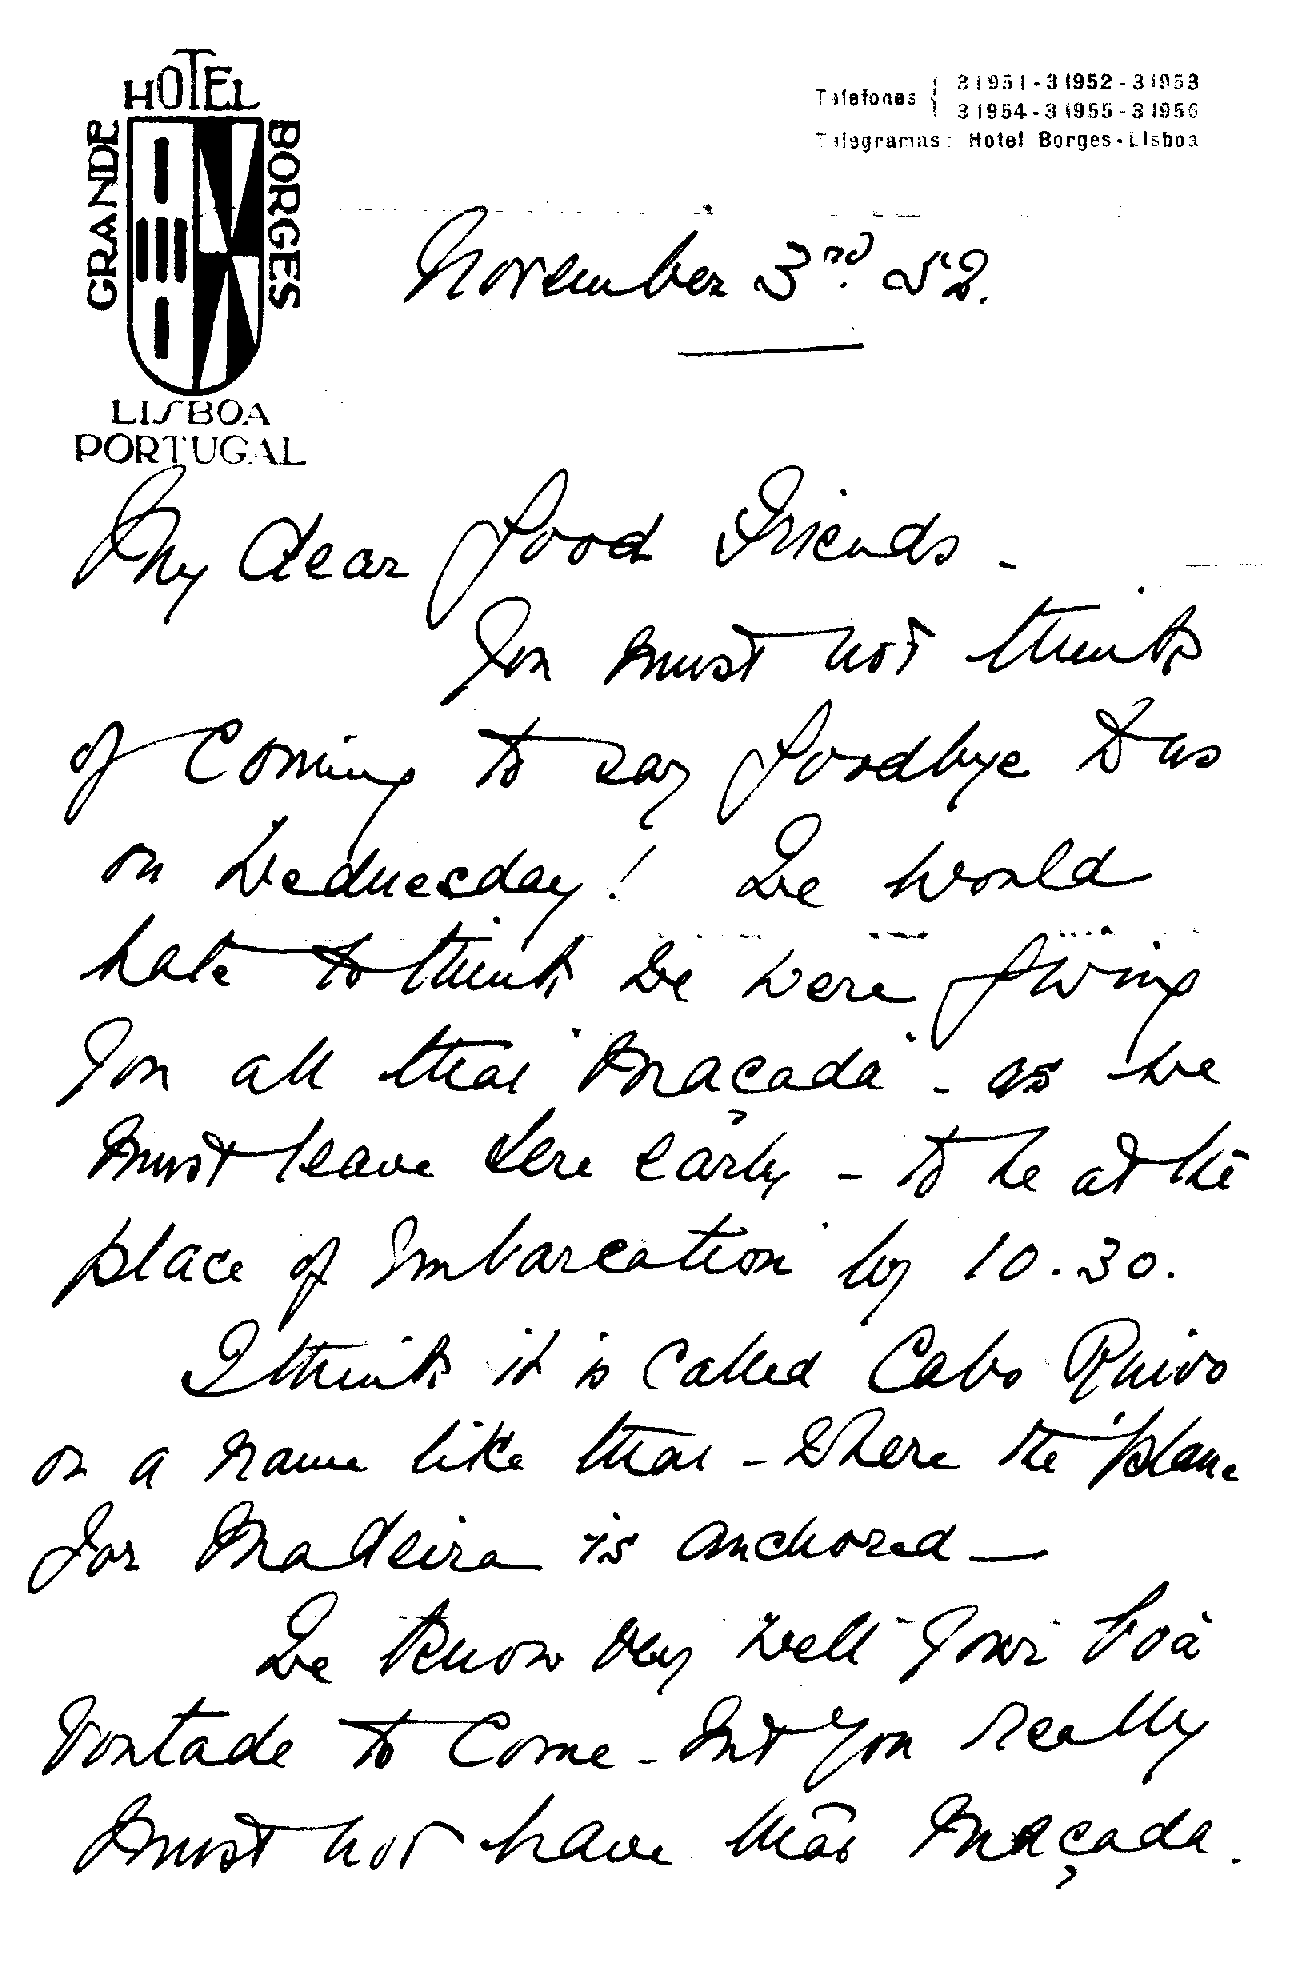 GRANDE HOTEL BORGES
LISBOA
PORTUGAL
Telefones { 31951-31952-31953
31954-31955-31956
Telegramas: Hotel Borges-Lisboa
November 3rd. 52.
My dear Good Friends -
You must not think
of Coming to say Goodbye to us
on Wednesday! We would
hate to think we were giving
You all that "maçada" - as we
must leave here early - to be at the
place of Embarcation by 10.30.
I think it is called Cabo Ruivo
or a name like that - Where the plane
for Madeira is anchored —
We know very well your boa
Vontade to Come - but you really
must not have this maçada.